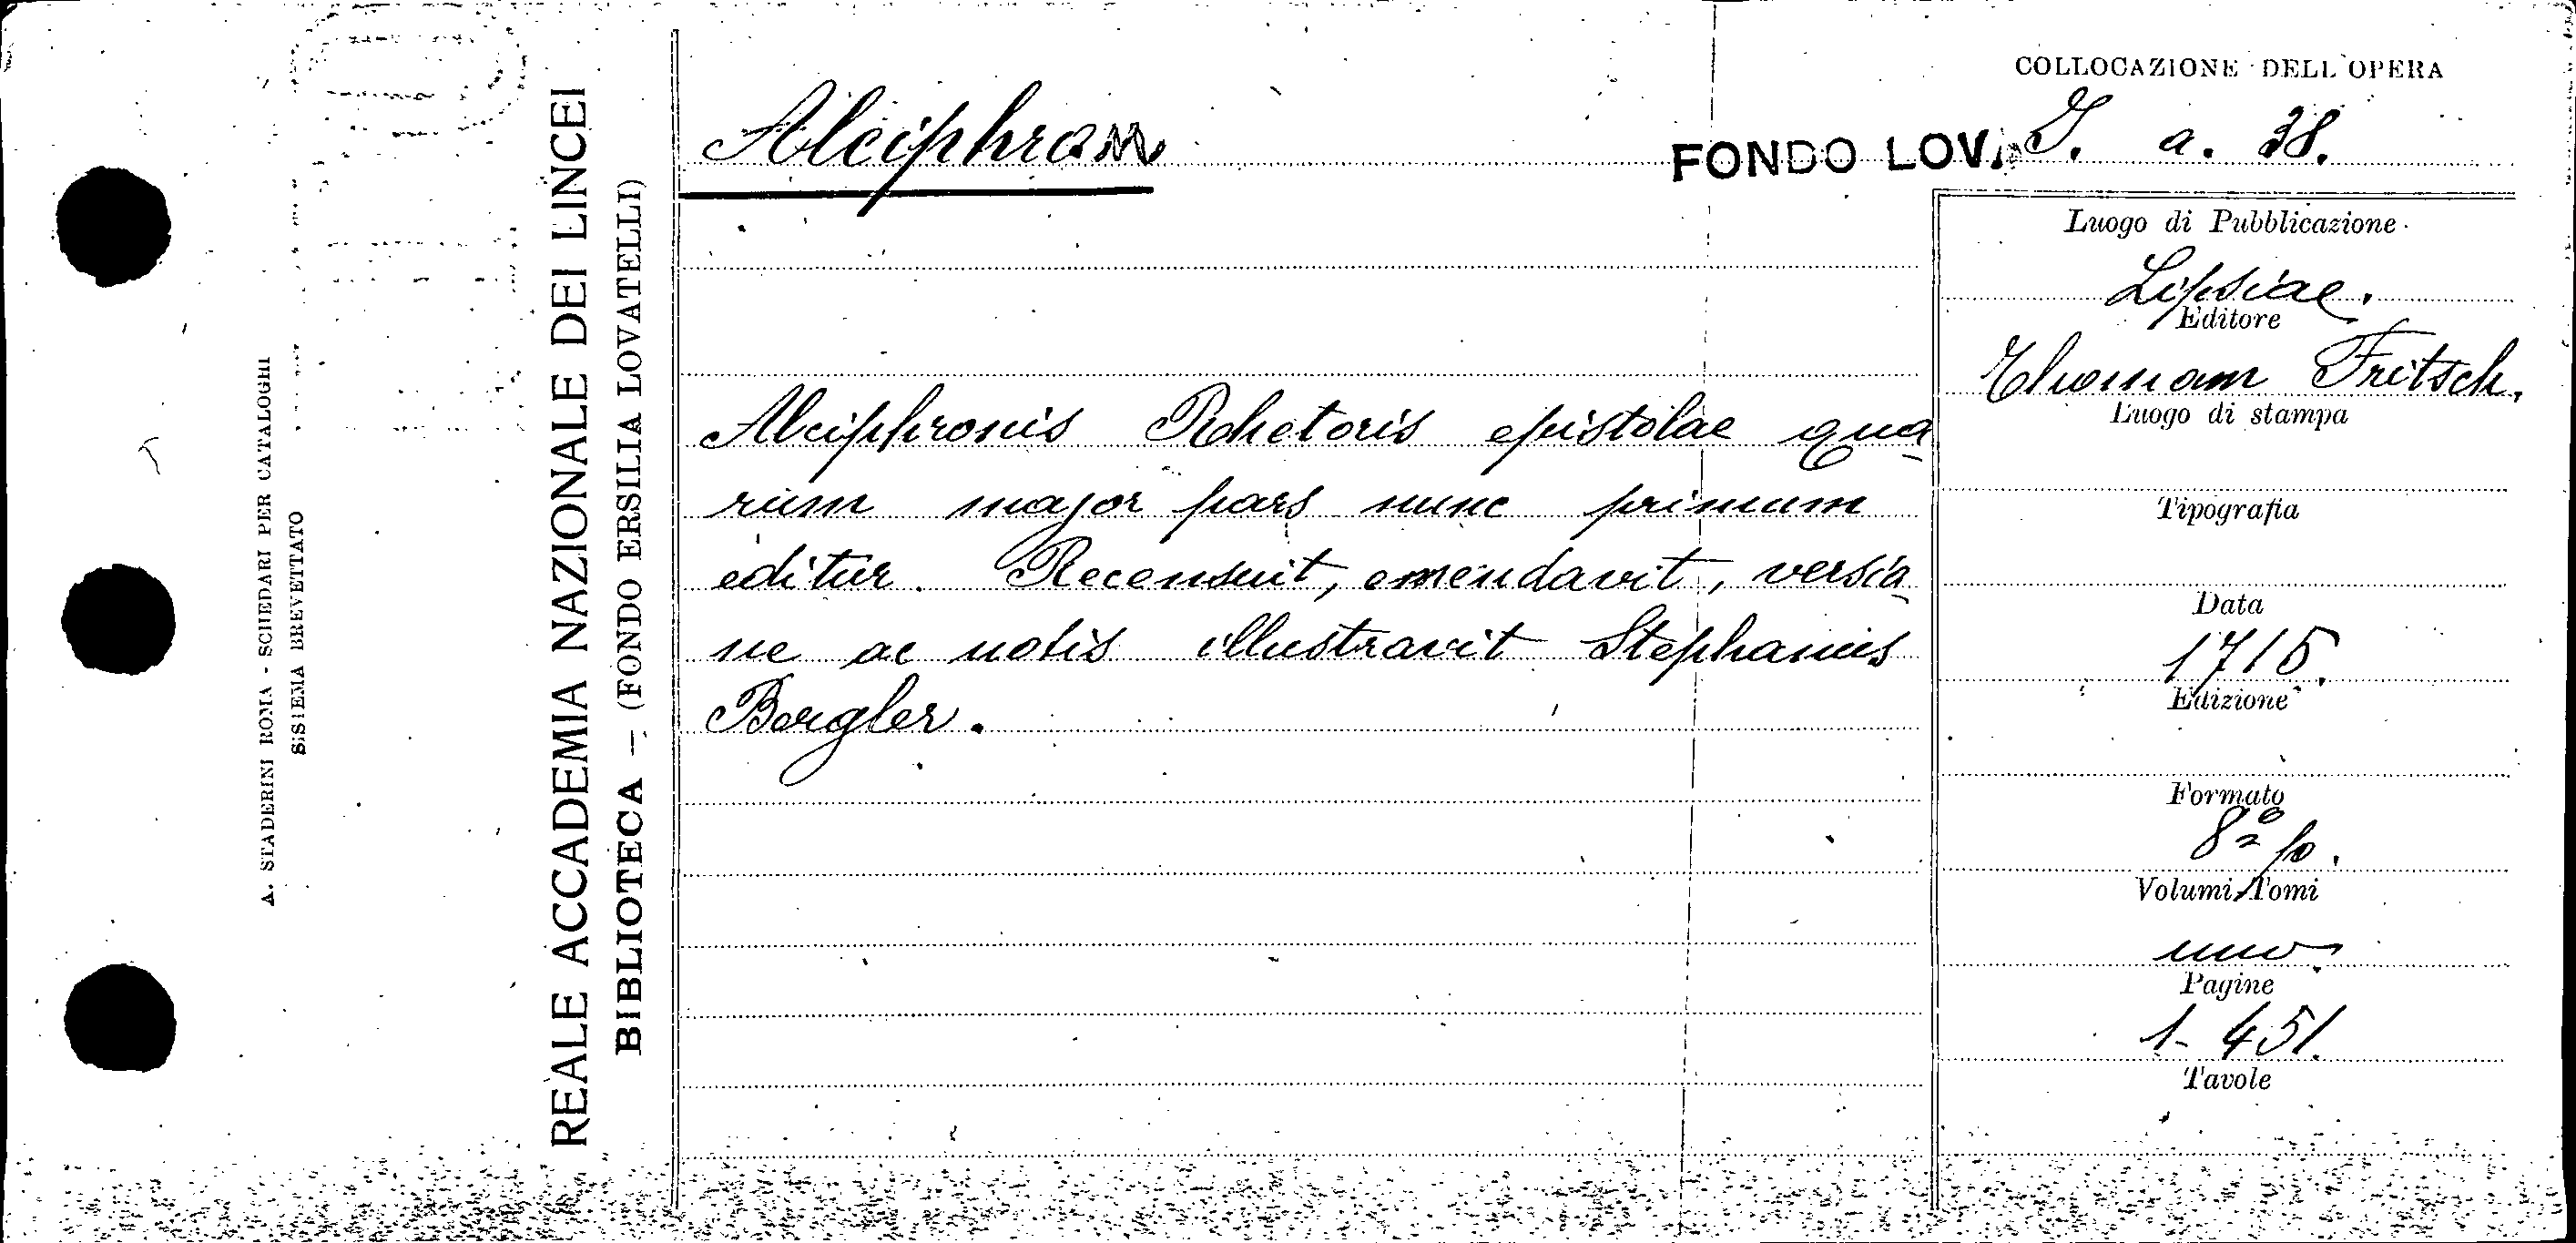 COLLOCAZIONE DELL'OPERA
Alciphron
FONDO LOV. I. a. 38.
REALE ACCADEMIA NAZIONALE DEI LINCEI
BIBLIOTECA – (FONDO ERSILIA LOVATELLI)
A. STADERINI ROMA - SCHEDARI PER CATALOGHI
SISTEMA BREVETTATO
Alciphronis Rhetoris epistolae qua-
rum major pars nunc primum
editur. Recensuit, emendavit, versio-
ne ac notis illustravit Stephanus
Bergler.
Luogo di Pubblicazione
Lipsiae.
Editore
Thomam Fritsch.
Luogo di stampa
Tipografia
Data
1715.
Edizione
Formato
8º po.
Volumi-Tomi
uno.
Pagine
1-451.
Tavole